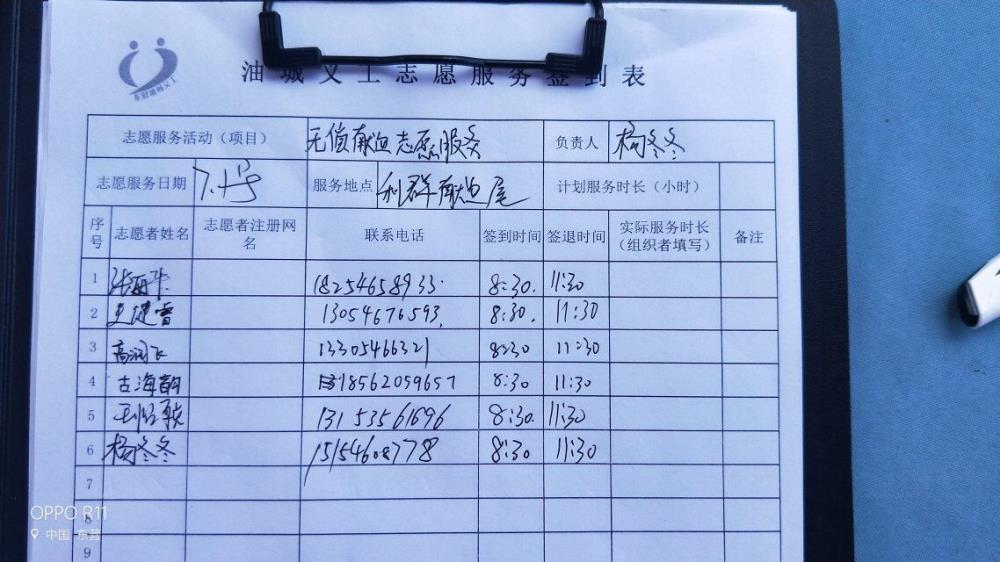 油城义工志愿服务签到表
东营油城义工
志愿服务活动（项目） 无偿献血志愿服务 负责人 杨冬冬
志愿服务日期 服务地点 利群献血屋 计划服务时长（小时）
序号 志愿者姓名 志愿者注册网名 联系电话 签到时间 签退时间 实际服务时长（组织者填写） 备注
1 18254658933. 8:30. 11:30
2 13054676593. 8:30. 11:30
3 高润飞 13305466321 8:30 11:30
4 古海韵 18562059657 8:30 11:30
5 13153561696 8:30. 11:30
6 杨冬冬 15154608778 8:30 11:30
7
8
9
OPPO R11
中国·东营